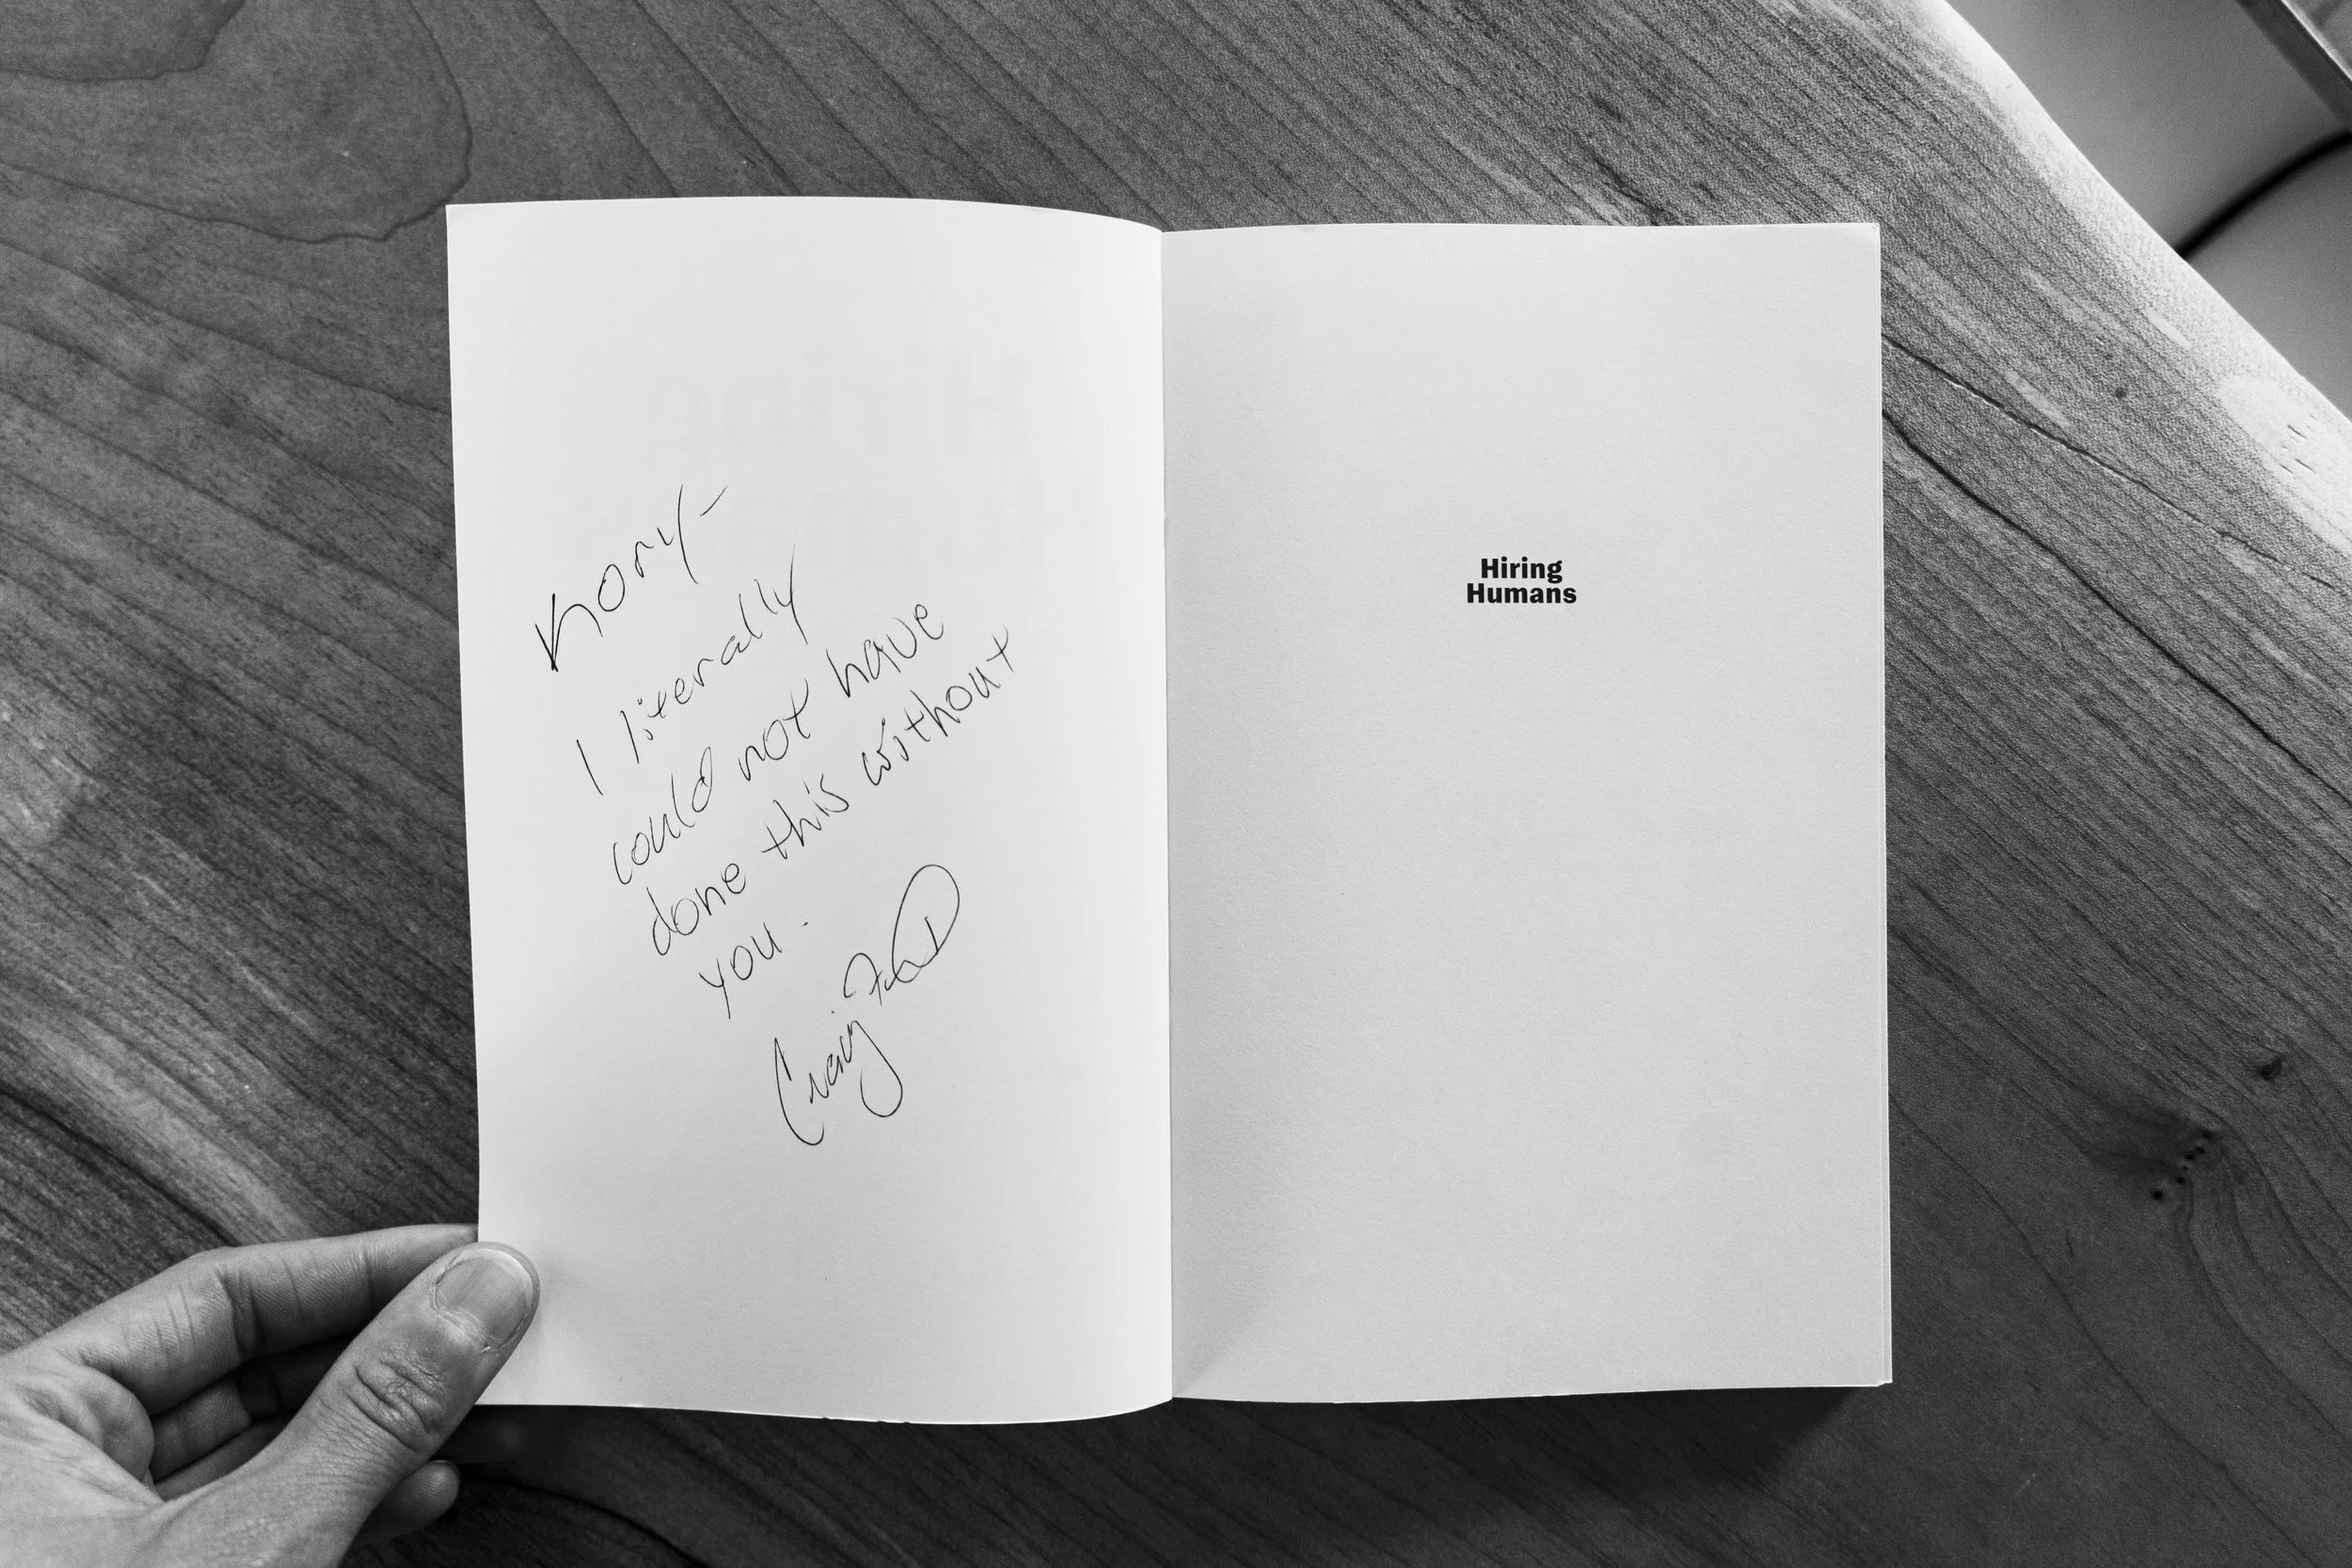 Kory-
I literally
could not have
done this without
you.
Craig
Hiring
Humans